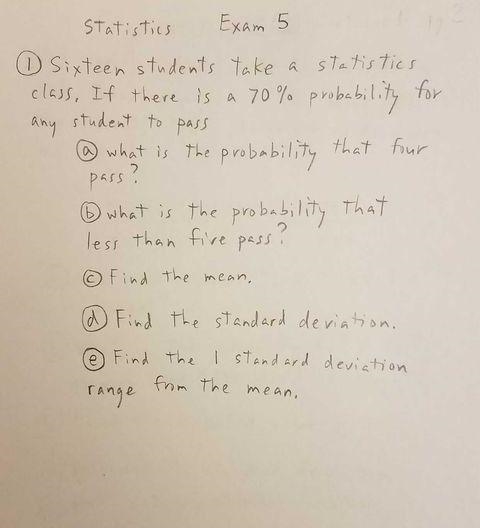 Statistics Exam 5
① Sixteen students take a statistics
class. If there is a 70% probability for
any student to pass
ⓐ what is the probability that four
pass?
ⓑ what is the probability that
less than five pass?
ⓒ Find the mean.
ⓓ Find the standard deviation.
ⓔ Find the 1 standard deviation
range from the mean.